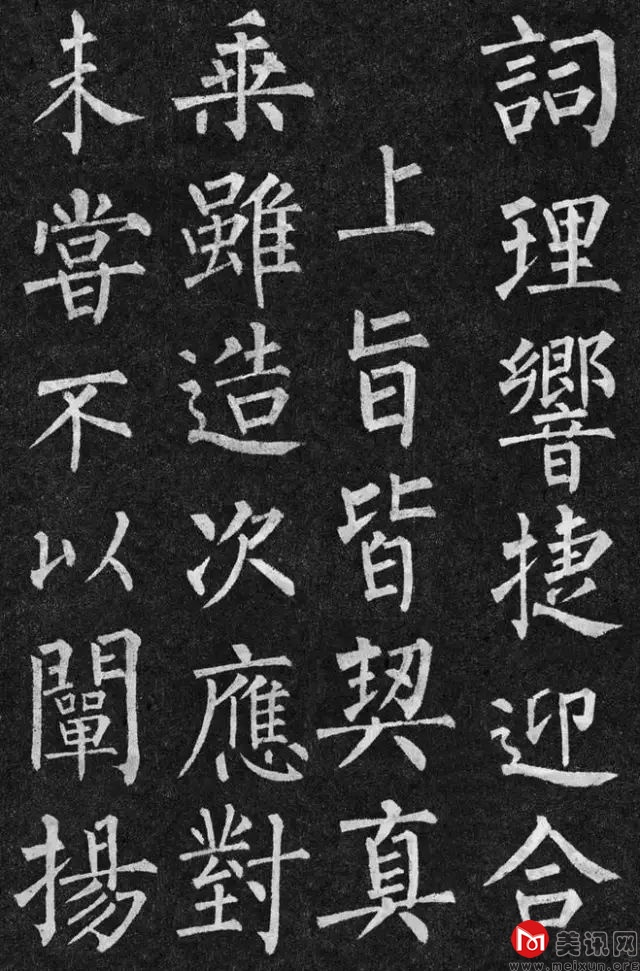 詞理響捷迎合
上旨皆契真
乘雖造次應對
未嘗不以闡揚
美讯网
www.meixun.org